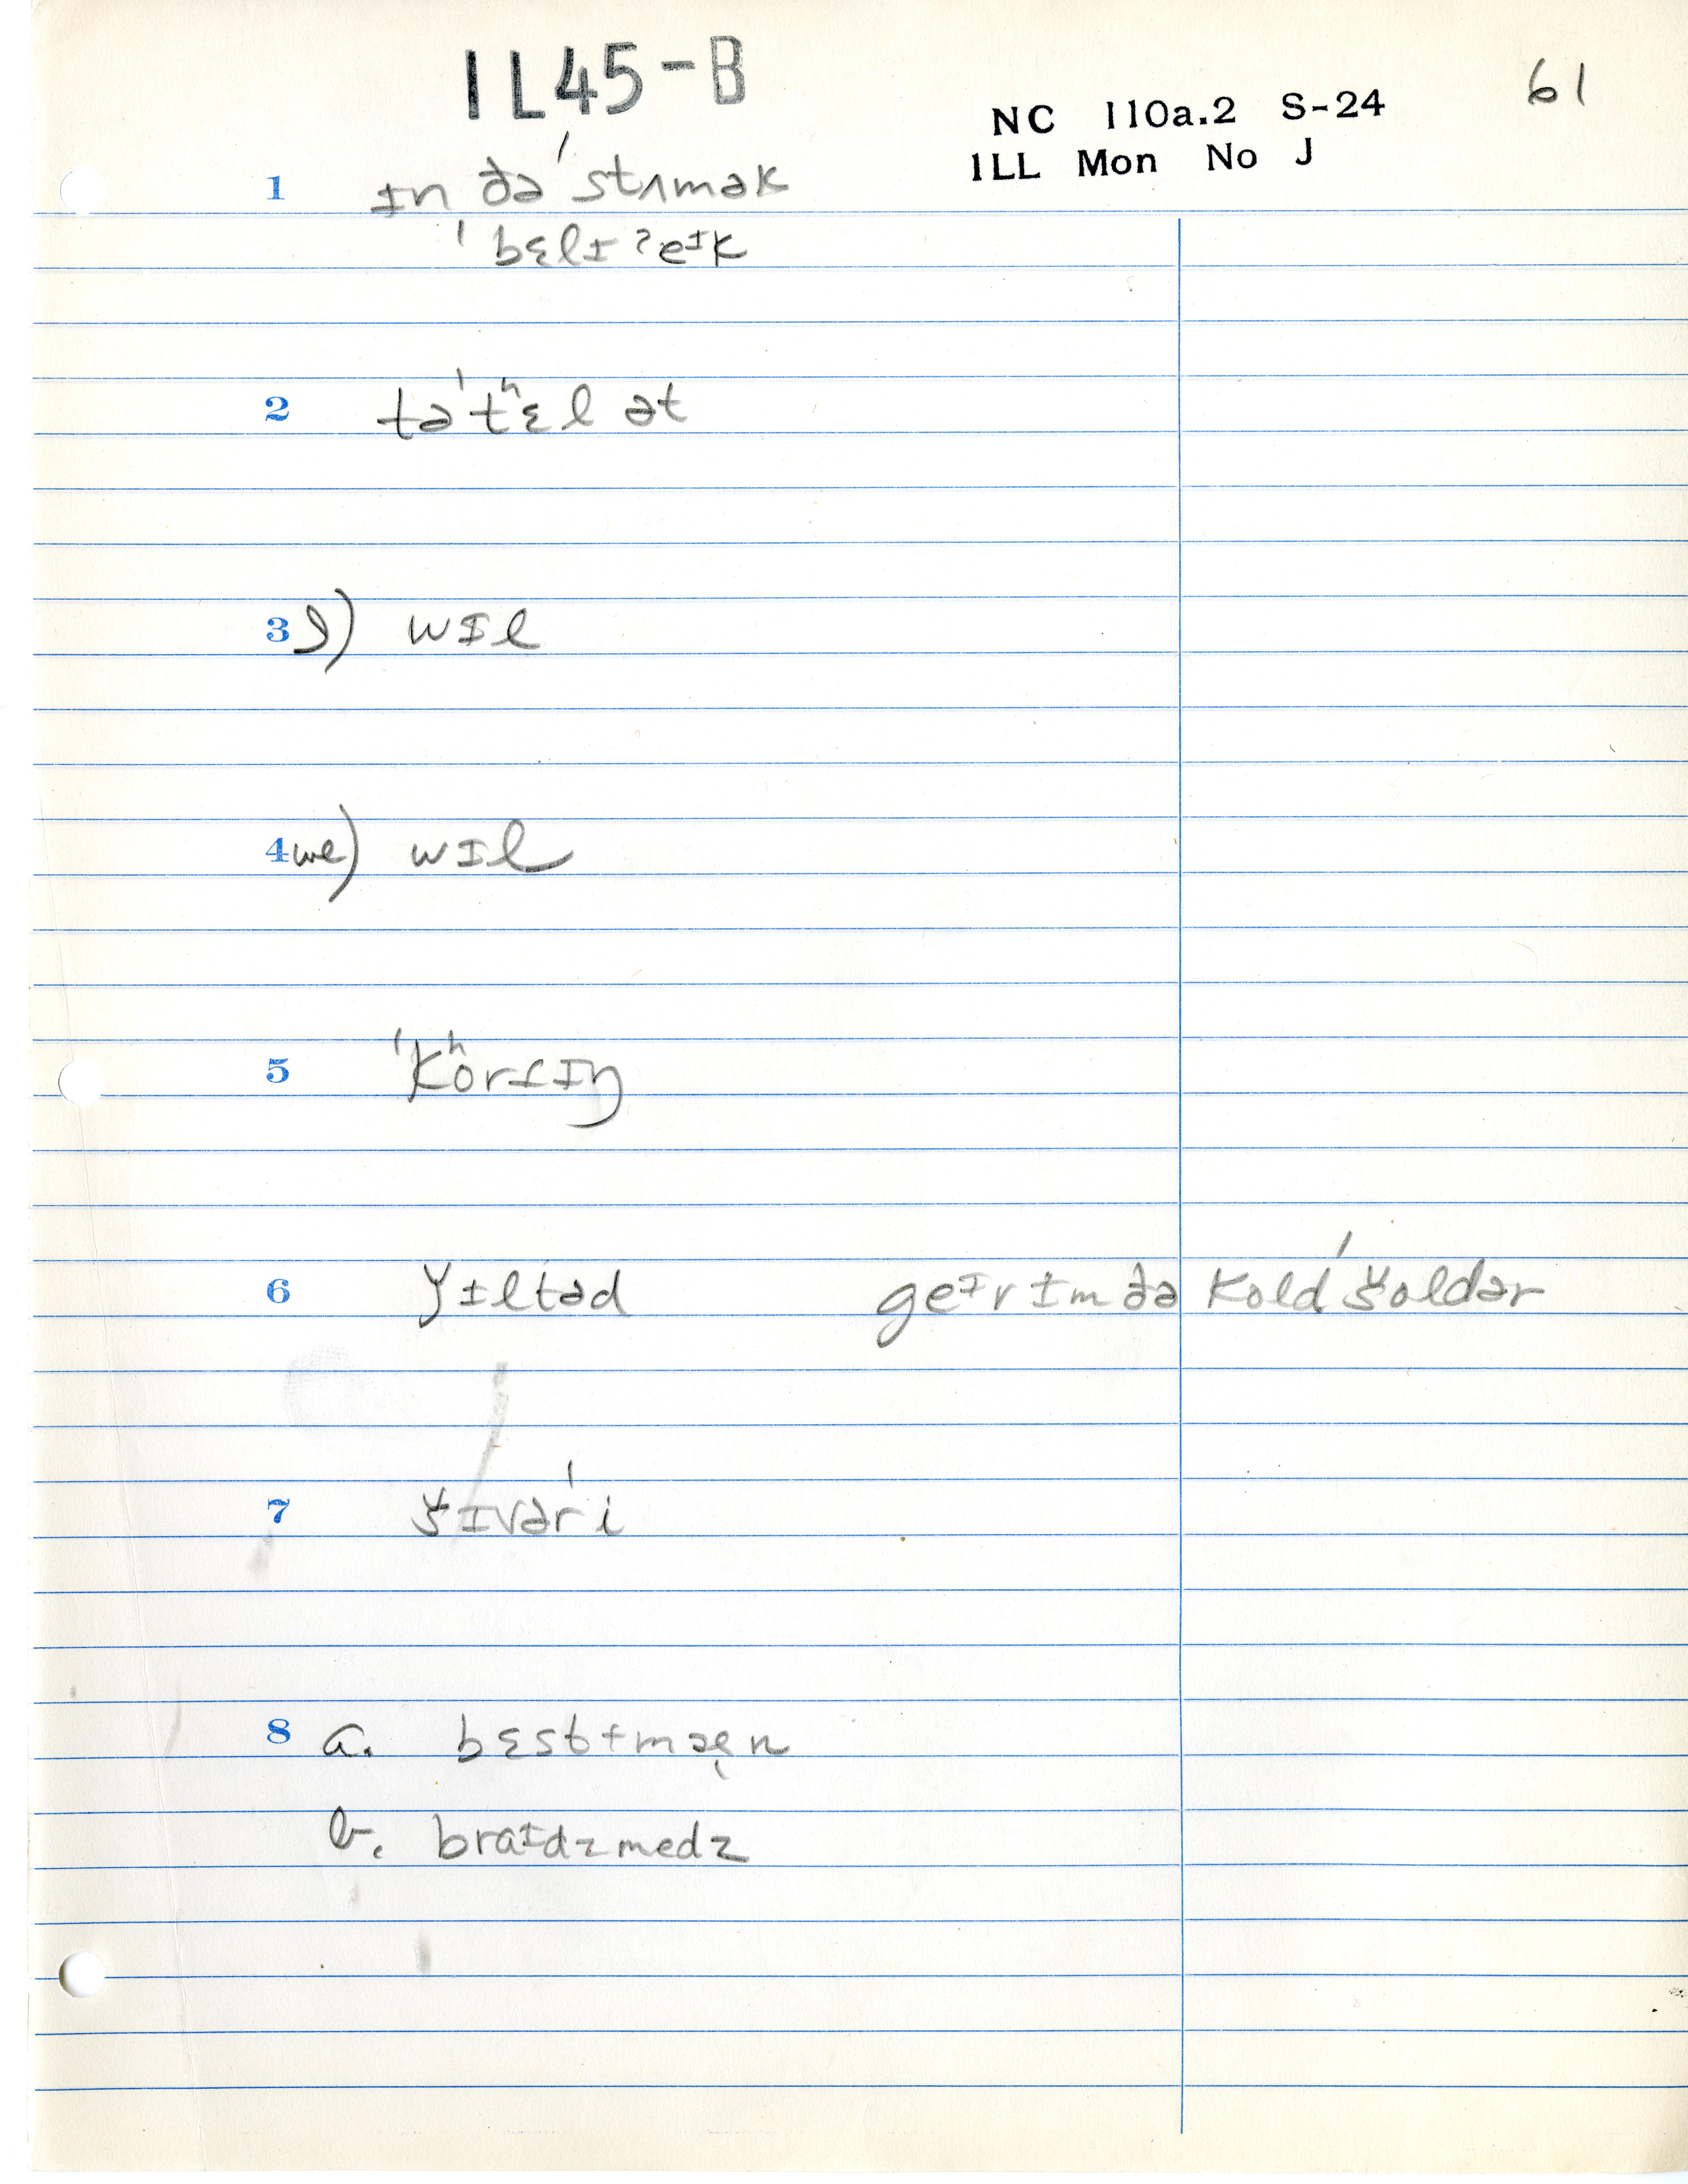 IL45-B
61
NC 110a.2 S-24
ILL Mon No J
1 ɪn ðə ˈstʌmək
ˈbɛlɪʔeɪk
2 təˈtʰɛl ət
3 I) wɪl
4 we) wɪl
5 ˈkʰorɪɪŋ
6 y̌ɪltəd geɪv ɪm ðə kold ˈšoldər
7 šɪvəˈri
8 a. bɛstmæn
b. braɪdzmedz